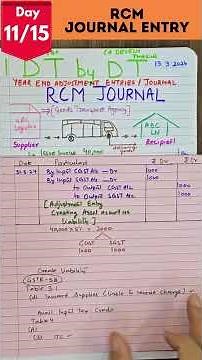 Day
11/15
RCM
JOURNAL ENTRY
CA DEVESH THAKUR
13.3.2024
IDT by DT
YEAR END ADJUSTMENT ENTRIES / JOURNAL
RCM JOURNAL
[Goods Transport Agency]
Logistics
ABC
Ltd
delivering goods
Supplier
40,000
Recipient
Date
Particulars
₹ Dr
₹ Cr
31.3.24
By Input CGST A/c — Dr
1000
By Input SGST A/c — Dr
1000
to Output CGST A/c
1000
to Output SGST A/c
1000
[Adjustment Entry
Creating Asset as well as
Liability]
CGST
SGST
1000
1000
Create Liability
(GSTR-3B)
Table 3.1
(d) Inward Supplies (liable to reverse charge)
Avail Input Tax Credit
Table 4
(A)
ITC —